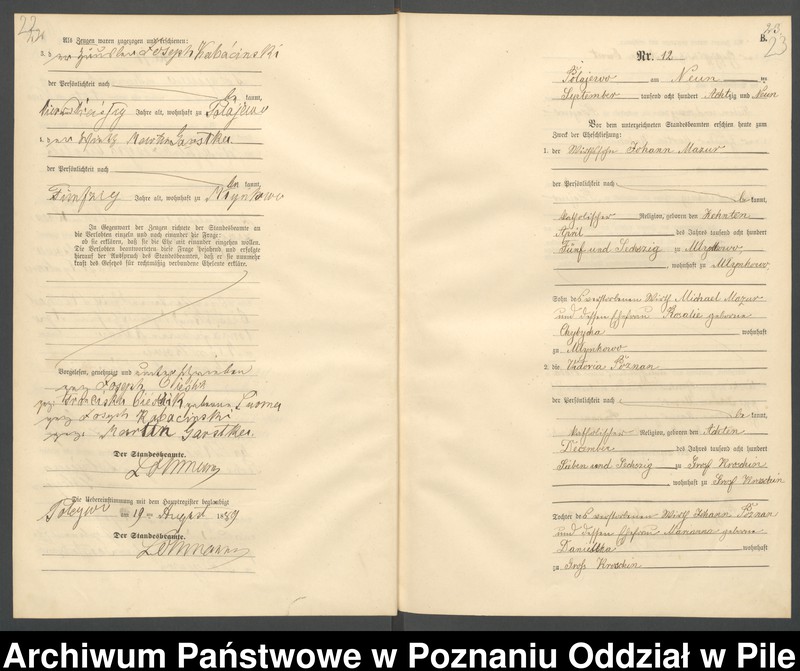 22
Als Zeugen waren zugezogen und erschienen:
3. der Häusler Joseph Kabaciński
der Persönlichkeit nach
be kannt,
vierunddreißig Jahre alt, wohnhaft zu Polajewo
4. der Wirth Martin Garstka
der Persönlichkeit nach
be kannt,
Fünfzig Jahre alt, wohnhaft zu Mlynkowo
In Gegenwart der Zeugen richtete der Standesbeamte an
die Verlobten einzeln und nach einander die Frage:
ob sie erklären, daß sie die Ehe mit einander eingehen wollen.
Die Verlobten beantworteten diese Frage bejahend und erfolgte
hierauf der Ausspruch des Standesbeamten, daß er sie nunmehr
kraft des Gesetzes für rechtmäßig verbundene Eheleute erkläre.
Vorgelesen, genehmigt und unterschrieben
gez. Joseph
gez. Franciska geborene
gez. Joseph Kabaciński
gez. Martin Garstka.
Der Standesbeamte.
Lehmann
Die Uebereinstimmung mit dem Hauptregister beglaubigt
Polajewo am 19 ten August 1889
Der Standesbeamte.
Lehmann
23
B.
23
Nr. 12
Polajewo am Neun ten
September tausend acht hundert Achtzig und Neun
Vor dem unterzeichneten Standesbeamten erschien heute zum
Zweck der Eheschließung:
1. der Wirthssohn Johann Mazur
der Persönlichkeit nach
be kannt,
katholischer Religion, geboren den Zehnten
April des Jahres tausend acht hundert
Fünf und Sechszig zu Mlynkowo
, wohnhaft zu Mlynkowo
Sohn des verstorbenen Wirth Michael Mazur
und dessen Ehefrau Rosalie geborene
Chybicka wohnhaft
zu Mlynkowo
2. die Victoria Poznan
der Persönlichkeit nach
be kannt,
katholischer Religion, geboren den Achten
December des Jahres tausend acht hundert
Sieben und Sechszig zu Groß Kroschin
, wohnhaft zu Groß Kroschin
Tochter des verstorbenen Wirth Johann Poznan
und dessen Ehefrau Marianna geborene
wohnhaft
zu Groß Kroschin
Archiwum Państwowe w Poznaniu Oddział w Pile